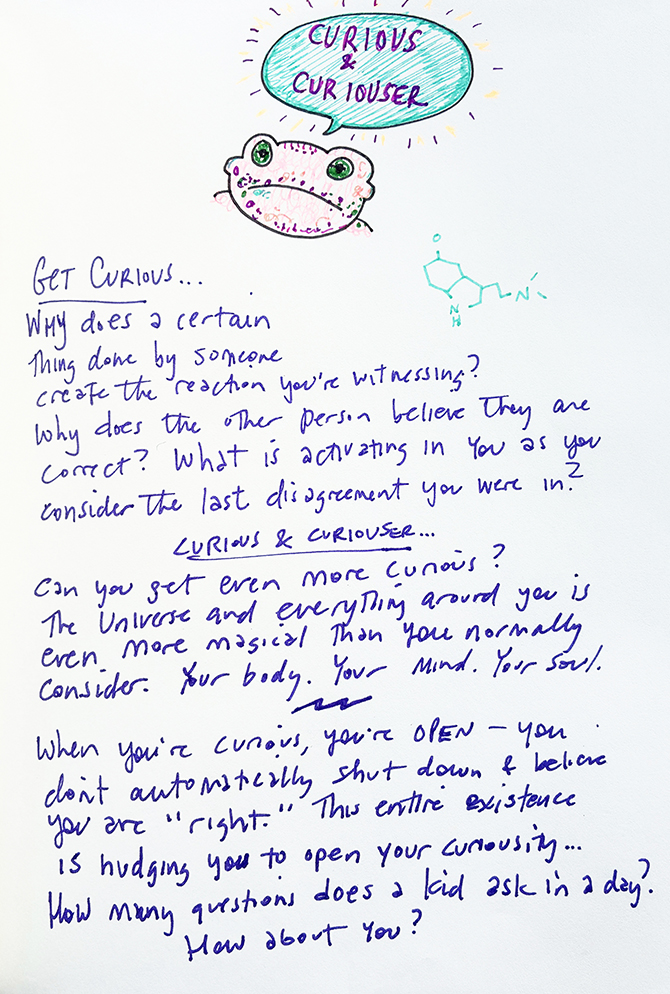 CURIOUS
&
CURIOUSER
O
N
N
H
GET CURIOUS...
WHY does a certain
thing done by someone
create the reaction you're witnessing?
Why does the other person believe they are
correct? What is activating in you as you
consider the last disagreement you were in?
CURIOUS & CURIOUSER...
Can you get even more curious?
The Universe and everything around you is
even more magical than you normally
consider. Your body. Your mind. Your soul.
When you're curious, you're OPEN – you
don't automatically shut down & believe
you are "right." This entire existence
is nudging you to open your curiousity...
How many questions does a kid ask in a day?
How about you?